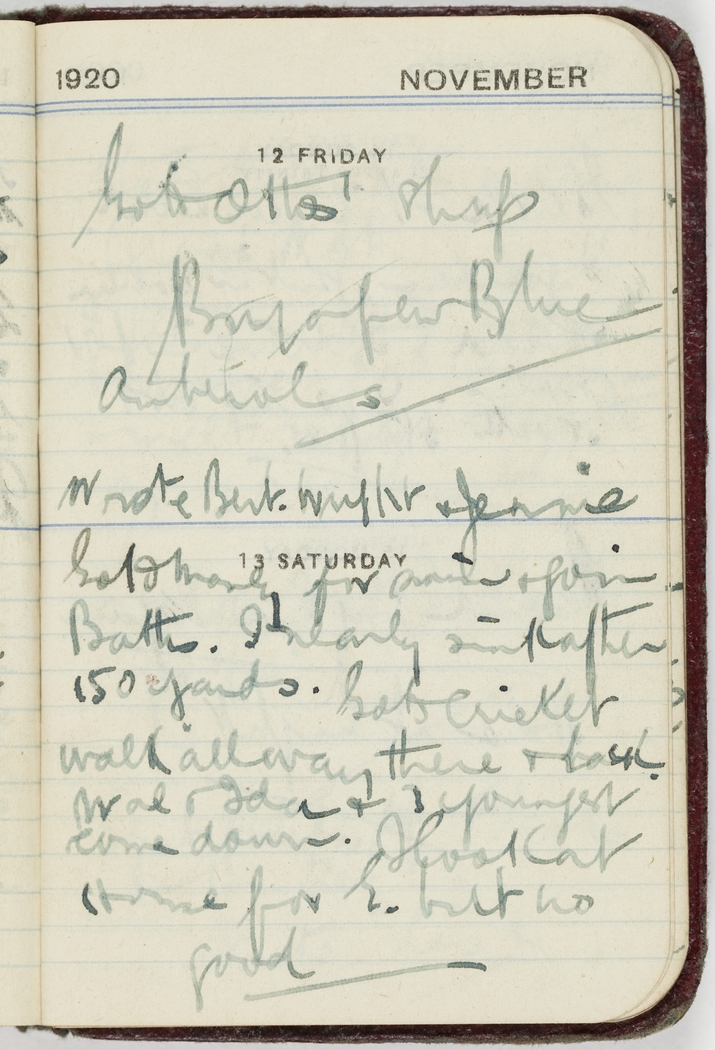 1920 NOVEMBER
12 FRIDAY
Go to Otto's shup
Buy a few Blue
Wrote Bert. Wright & Jennie
13 SATURDAY
Go to Manly for swim
Baths. I nearly sink after
150 yards. Go to Cricket
walk all way there & back.
Wal & Ida & 3 youngest
come down. I look at
House for E. but no
good